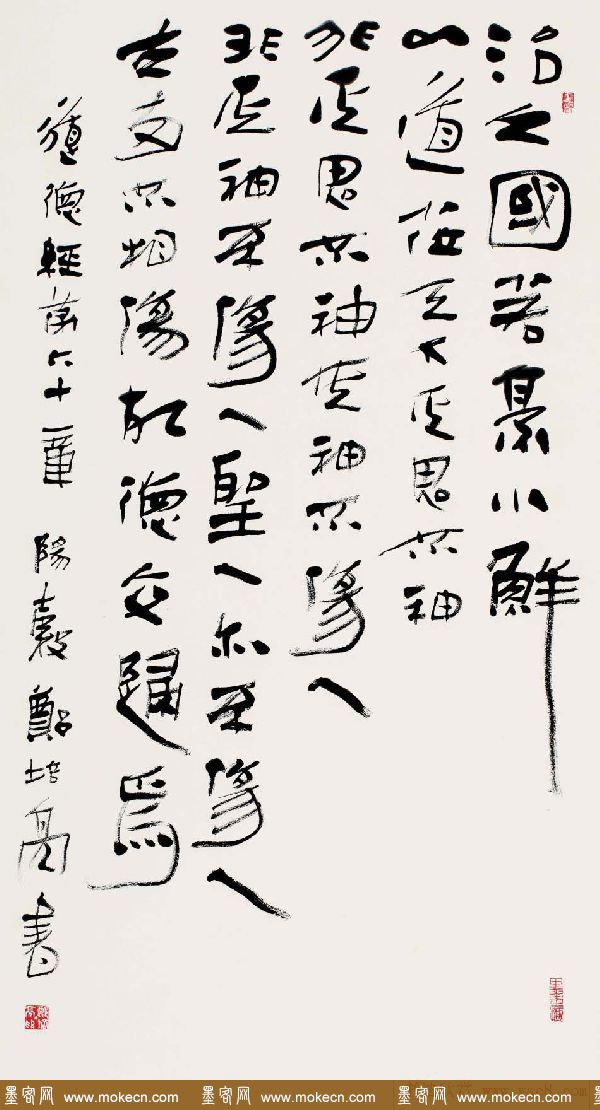 治大國若烹小鮮
以道莅天下其鬼不神
非其鬼不神其神不傷人
非其神不傷人聖人亦不傷人
夫兩不相傷故德交歸焉
道德經第六十章 陽穀鄭培亮書
墨客网 www.mokecn.com 墨客网 www.mokecn.com 墨客网 www.mokecn.com